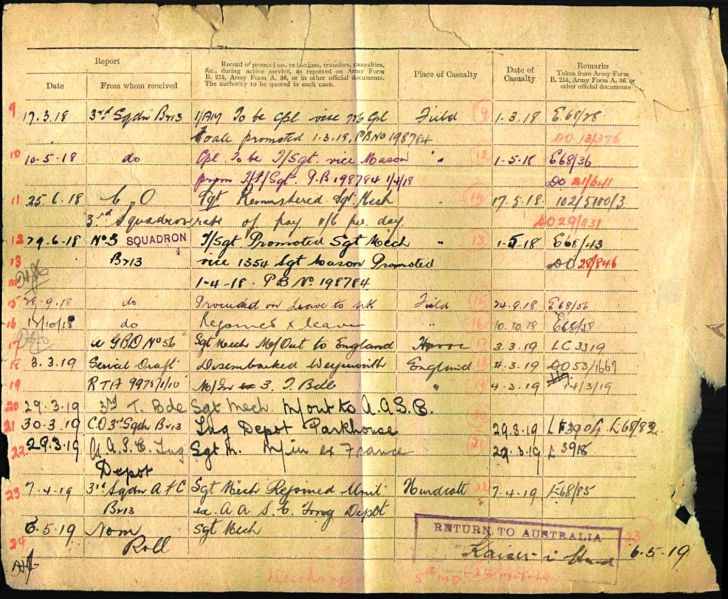 Report
Record of promotions, reductions, transfers, casualties,
&c., during active service, as reported on Army Form
B. 213, Army Form A. 36, or in other official documents.
The authority to be quoted in each case.
Place of Casualty
Date of
Casualty
Remarks
Taken from Army Form
B. 213, Army Form A. 36, or
other official documents
Date
From whom received
9 17.3.18 3rd Sqdn Br13 1/AM To be Cpl vice Field (9 1-3-18 E68/28
promoted 1-3-18, PB No 198784 DO
10 10-5-18 do Cpl To be T/Sgt. vice Mason " 1-5-18 E68/36
from P.B 198784 DO
11 25.6.18 C. O Sgt Remustered Sgt Mech " 17.5.18 102/5700/3
3rd Squadron rate of pay per day DO 29/
12 29.6.18 No 3 SQUADRON T/Sgt Promoted Sgt Mech " 13 1-5-18 E68/43
13 Br13 vice 1354 Sgt Cason Promoted DO 28/846
1-4-18. P.B No 198784
15 28.9.18 do Proceeded on Leave to UK Field 15 24.9.18 E68/56
16 do Rejoined x leave " 10.10.18 E68/58
17 GRO No 56 Sgt Mech M/Out to England Havre 17 3.3.19 LC3319
18 8.3.19 Serial Draft Disembarked Weymouth England 4-3-19 DO 53/
19 RTA M/In ex 3. T. Bde " 4-3-19 14/3/19
20 29.3.19 3rd T. Bde Sgt Mech. M/out to A.A.S.C.
21 30-3.19 CO 3rd Sqdn Br13 Trg Depot Parkhouse 29.3-19 E68/82
22 29.3.19 A.A.S.C. Trg Sgt M. M/in ex France 21 29-3-19 L 3918
Depot
23 7-4.19 3rd Sqdn AFC Sgt Mech Rejoined Unit Hurdcott 22 7-4.19 E68/85
Br13 ex. A A S. C. Trng Depot
6-5.19 Nom Sgt Mech
24 Roll
RETURN TO AUSTRALIA
Kaiser-i-Hind 6-5-19
Discharged